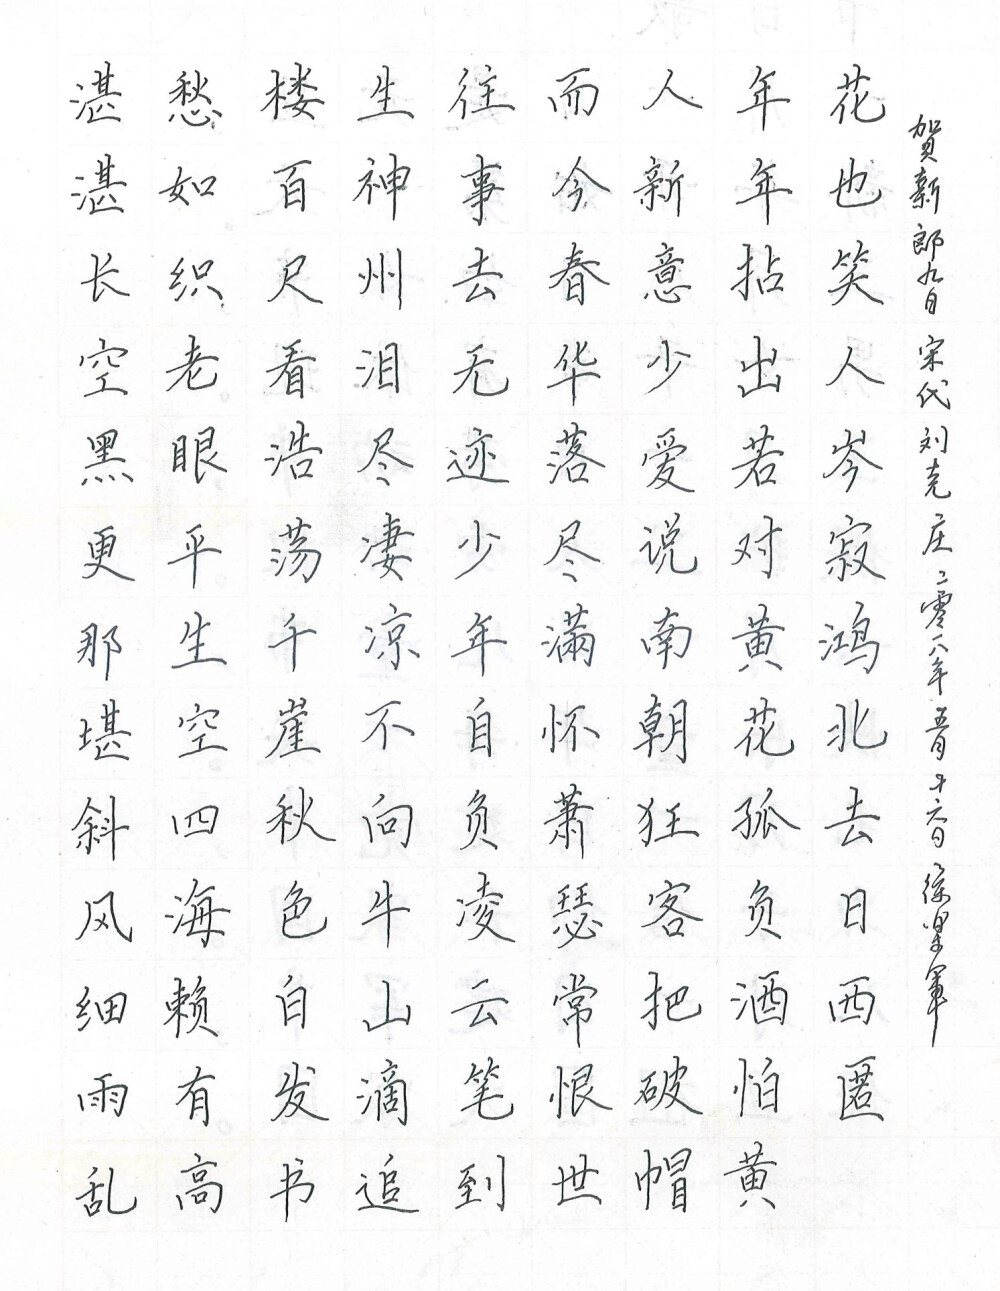 湛湛长空黑更那堪斜风细雨乱
愁如织老眼平生空四海赖有高
楼百尺看浩荡千崖秋色白发书
生神州泪尽凄凉不向牛山滴追
往事去无迹少年自负凌云笔到
而今春华落尽满怀萧瑟常恨世
人新意少爱说南朝狂客把破帽
年年拈出若对黄花孤负酒怕黄
花也笑人岑寂鸿北去日西匿
贺新郎九日 宋代刘克庄 二零一八年五月十六日 徐军